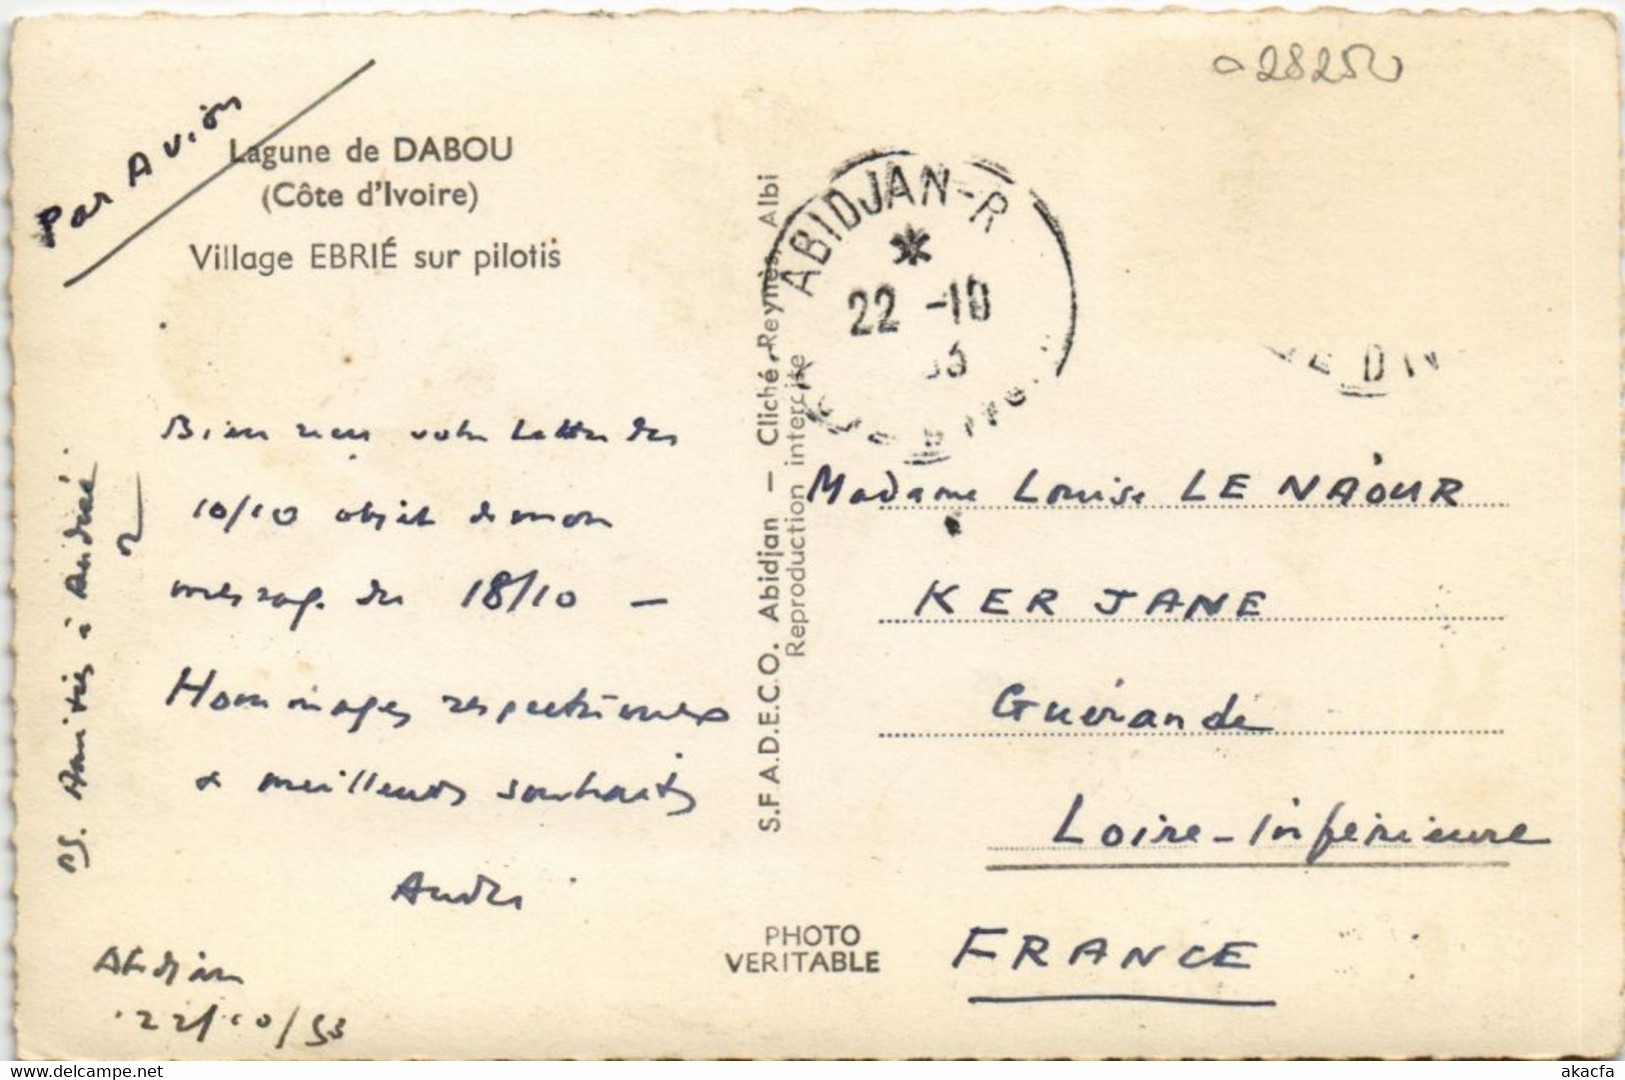 a 28250
Par Avion
Lagune de DABOU
(Côte d'Ivoire)
Village EBRIÉ sur pilotis
ABIDJAN-R
22 -10
Bien reçu votre lettre du
10/10 objet de mon
message du 18/10 —
Hommages respectueux
& meilleurs souhaits
André
Abidjan
22/10/53
PS. Amitiés à Andrée
S.F.A.D.E.C.O. Abidjan — Cliché Reynès, Albi
Reproduction interdite
PHOTO
VERITABLE
Madame Louise LE NAOUR
KER JANE
Guérande
Loire-Inférieure
FRANCE
akacfa